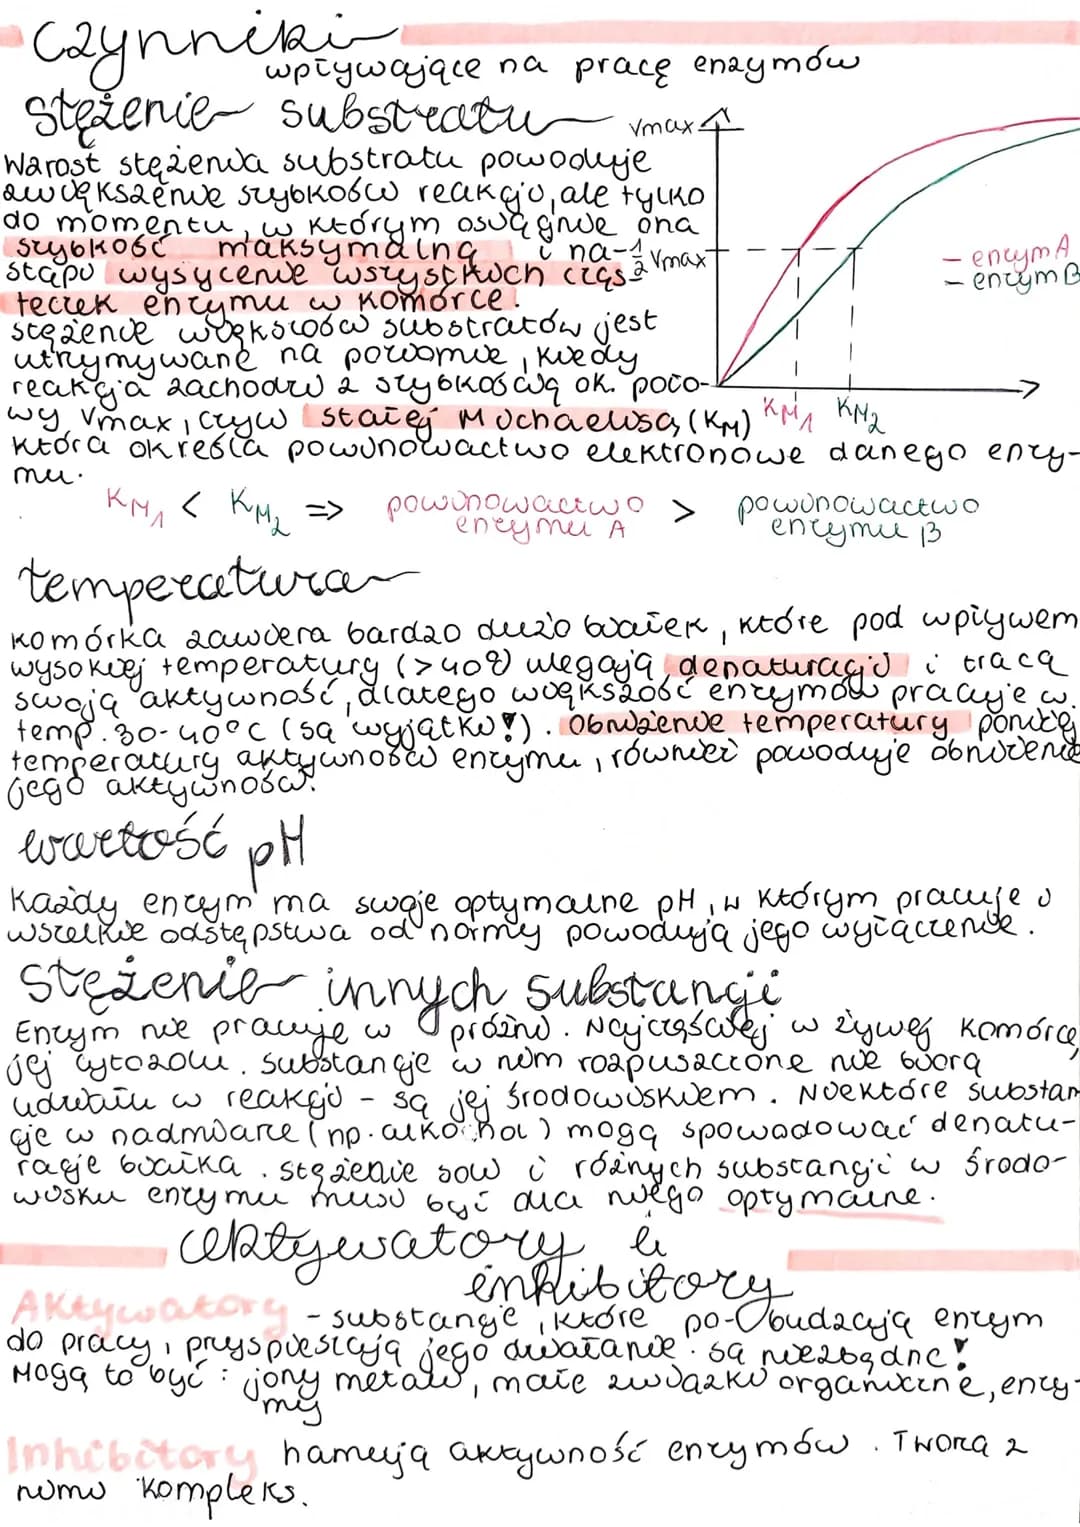 czynniki
wpływające na pracę enzymów
stężenie substratu
Wzrost stężenia substratu powoduje
zwiększenie szybkości reakcji, ale tylko
do momentu, w którym osiągnie ona
szybkość maksymalną i na-
stąpi wysycenie wszystkich cząs-
teczek enzymu w komórce.
stężenie większości substratów jest
utrzymywane na poziomie, kiedy
reakcja zachodzi z szybkością ok. poło-
wy Vmax, czyli stałej Michaelisa (KM)
która określa powinowactwo elektronowe danego enzy-
mu.
Vmax
1/2 Vmax
- enzym A
- enzym B
KM1 KM2
KM1 < KM2 => powinowactwo enzymu A > powinowactwo enzymu B
temperatura
komórka zawiera bardzo dużo białek, które pod wpływem
wysokiej temperatury (>40°C) ulegają denaturacji i tracą
swoją aktywność, dlatego większość enzymów pracuje w
temp. 30-40°C (są wyjątki!). Obniżenie temperatury poniżej
temperatury aktywności enzymu, również powoduje obniżenie
jego aktywności.
wartość pH
Każdy enzym ma swoje optymalne pH, w którym pracuje i
wszelkie odstępstwa od normy powodują jego wyłączenie.
stężenie innych substancji
Enzym nie pracuje w próżni. Najczęściej w żywej komórce,
jej cytozolu. Substancje w nim rozpuszczone nie biorą
udziału w reakcji - są jej środowiskiem. Niektóre substan
cje w nadmiarze (np. alkohol) mogą spowodować denatu-
rację białka. stężenie soli i różnych substancji w środo-
wisku enzymu musi być dla niego optymalne.
aktywatory i
inhibitory
Aktywatory - substancje, które po-budzają enzym
do pracy, przyspieszają jego działanie. są niezbędne!
Mogą to być: jony metali, małe związki organiczne, enzy-
my
Inhibitory hamują aktywność enzymów. Tworzą z
nimi kompleks.